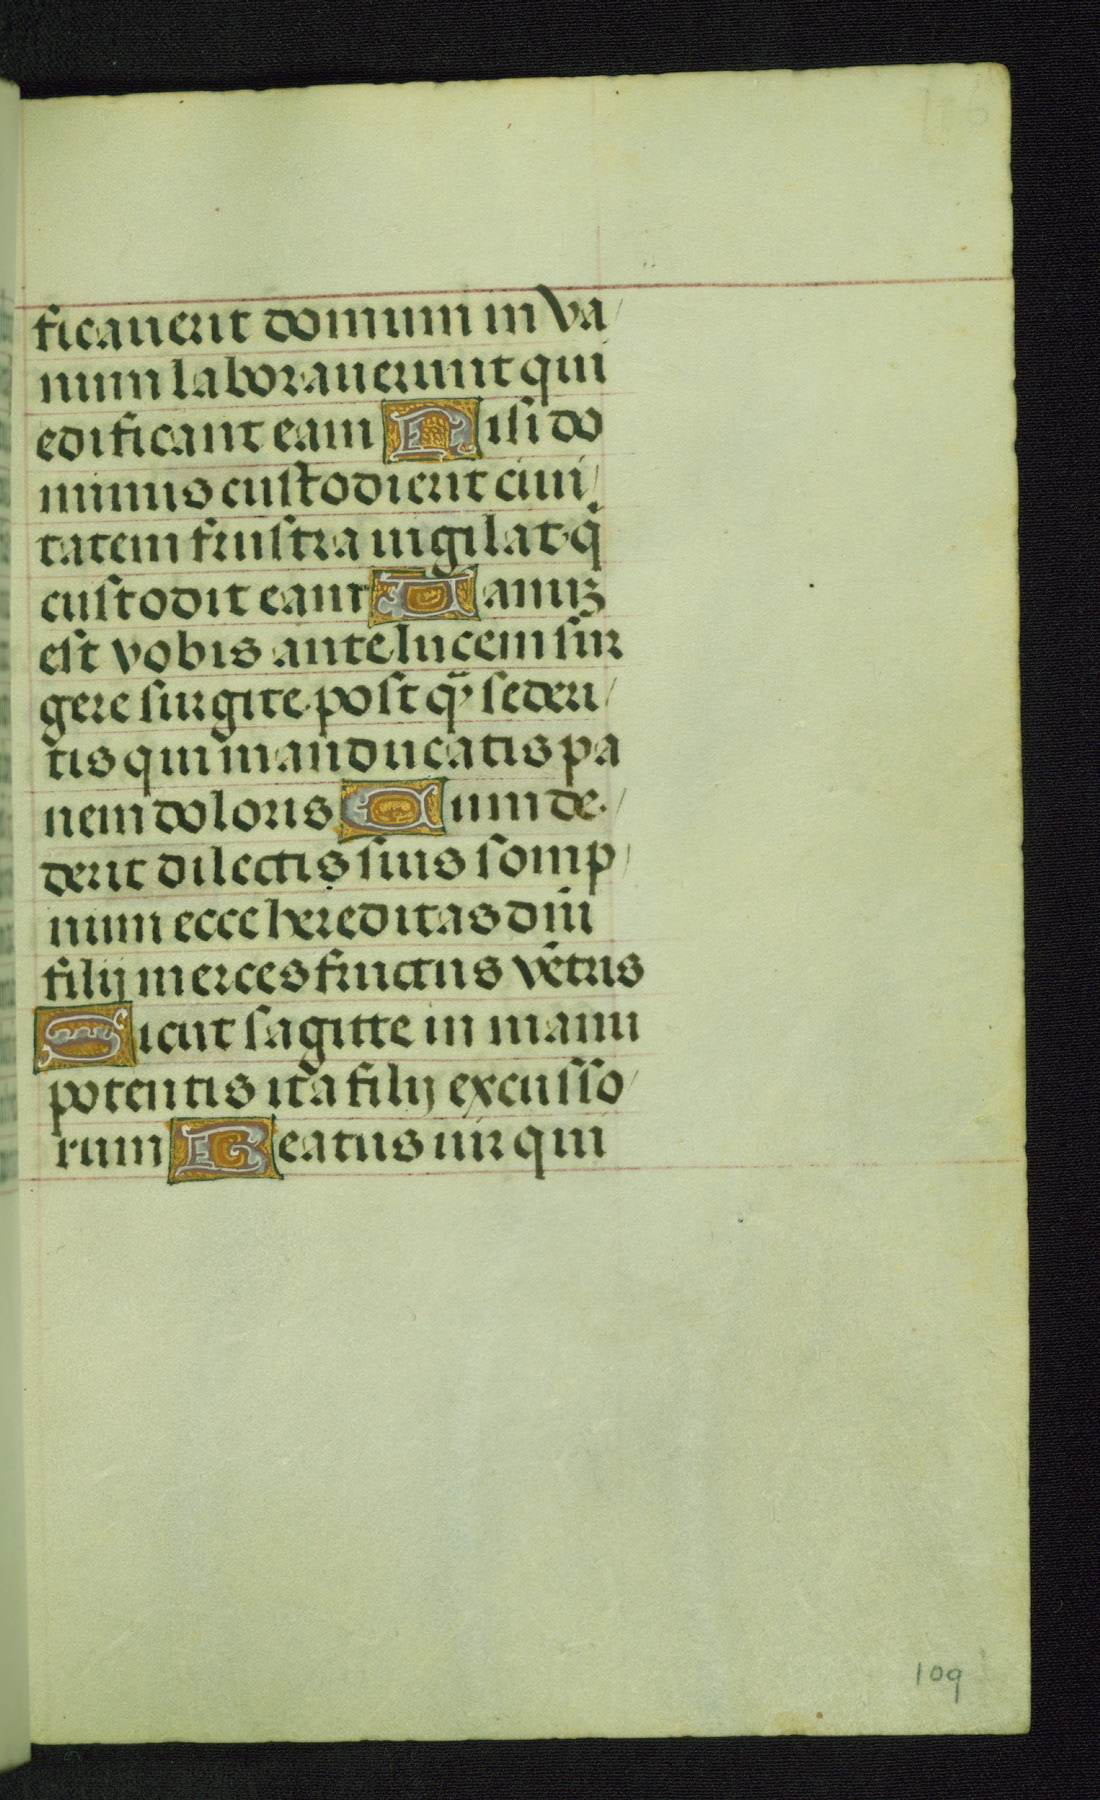 ficauerit domum in va
num laborauerunt qui
edificant eam Nisi do
minus custodierit ciui
tatem frustra uigilat q̇
custodit eam Vanuʒ
est vobis ante lucem sur
gere surgite post q̃ sederi
tis qui manducatis pa
nem doloris Cum de
derit dilectis suis somp
num ecce hereditas dñi
filij merces fructus vẽtris
Sicut sagitte in manu
potentis ita filij excusso
rum Beatus uir qui
109